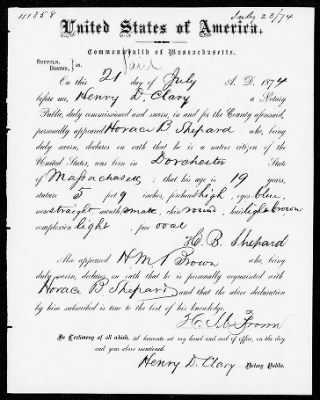 11358
July 23/74
United States of America.
Commonwealth of Massachusetts.
SUFFOLK,
BOSTON, } ss.
Paid
On this 21 day of July A. D. 1874
before me, Henry D. Clary a Notary
Public, duly commissioned and sworn, in and for the County aforesaid,
personally appeared Horace B Shepard who, being
duly sworn, declares on oath that he is a native citizen of the
United States, was born in Dorchester State
of Massachusetts; that his age is 19 years,
stature 5 feet 9 inches, forehead high, eyes blue,
nose straight mouth small, chin round, hair light brown
complexion light face oval
H. B. Shepard
Also appeared H M Brown who, being
duly sworn, declares on oath that he is personally acquainted with
Horace B Shepard and that the above declaration
by him subscribed is true to the best of his knowledge.
H. M. Brown
In Testimony of all which, I set hereunto my hand and seal of office, on the day
and year above mentioned.
Henry D. Clary Notary Public.